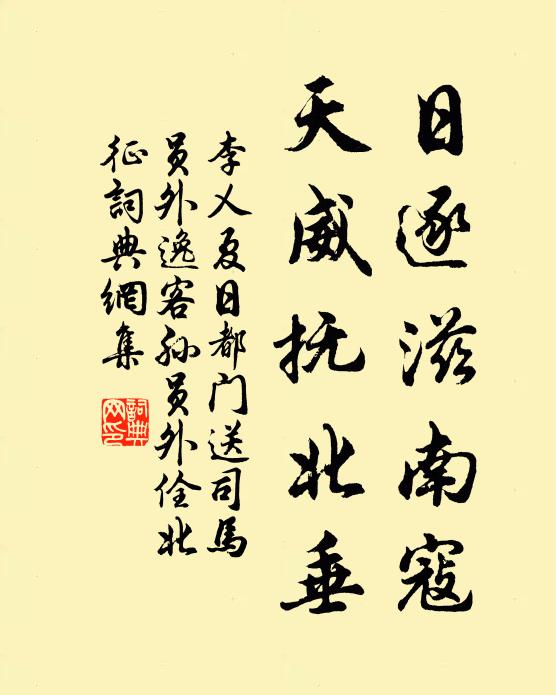 日逐滋南寇
天威抚北垂
李乂夏日都门送司馬
員外逸客孙員外佺北
征詞典網集
詞典
网印